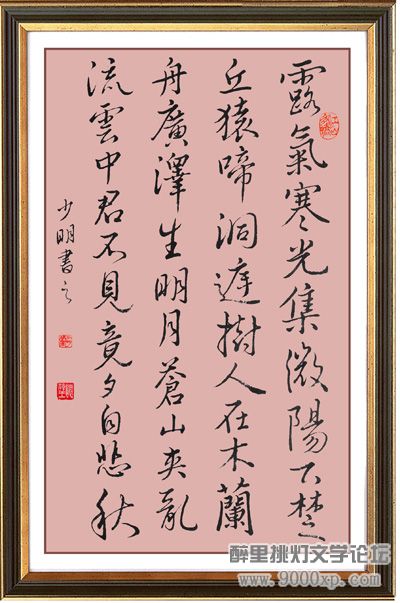 露氣寒光集微陽下楚
丘猿啼洞庭樹人在木蘭
舟廣澤生明月蒼山夾亂
流雲中君不見竟夕自悲秋
少明書之
醉里挑灯文学论坛
www.9000xp.com